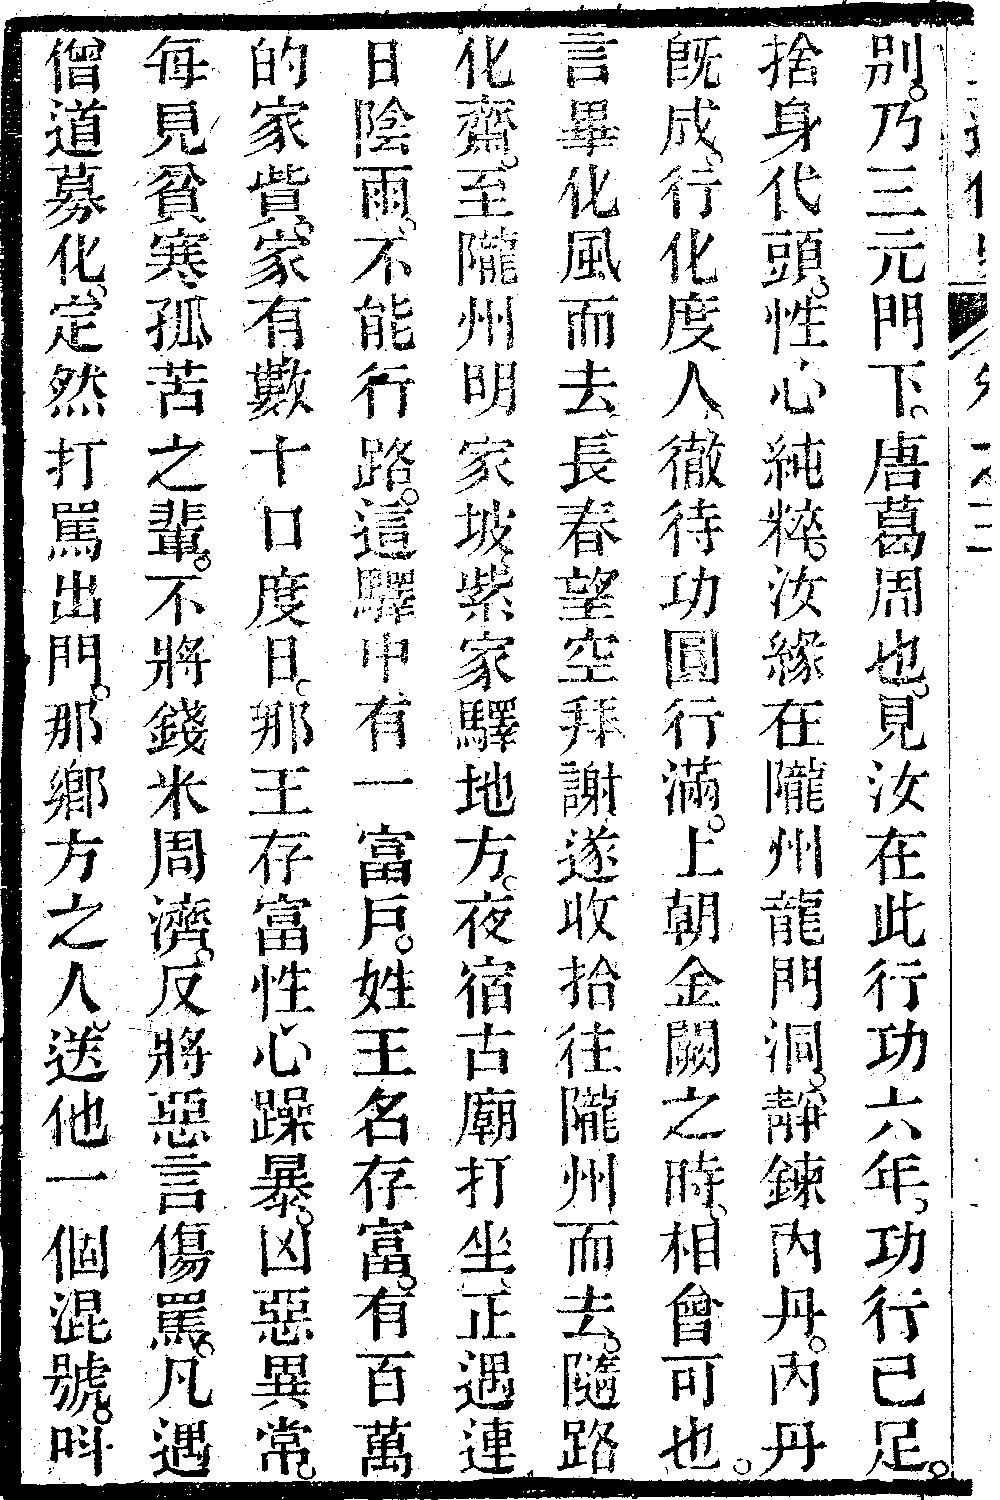 別。乃三元門下。唐葛周也。見汝在此行功六年。功行已足。
捨身代頭。性心純粹。汝緣在隴州龍門洞。靜鍊內丹。內丹
既成。行化度人。徹待功圓行滿。上朝金闕之時。相會可也。
言畢化風而去。長春望空拜謝遂收拾往隴州而去。隨路
化齋。至隴州明家坡。紫家驛地方。夜宿古廟打坐。正遇連
日陰雨。不能行路。這驛中有一富戶。姓王名存富。有百萬
的家貲。家有數十口度日。那王存富性心躁暴。凶惡異常。
每見貧寒孤苦之輩。不將錢米周濟。反將惡言傷罵。凡遇
僧道募化。定然打罵出門。那鄉方之人。送他一個混號。呌